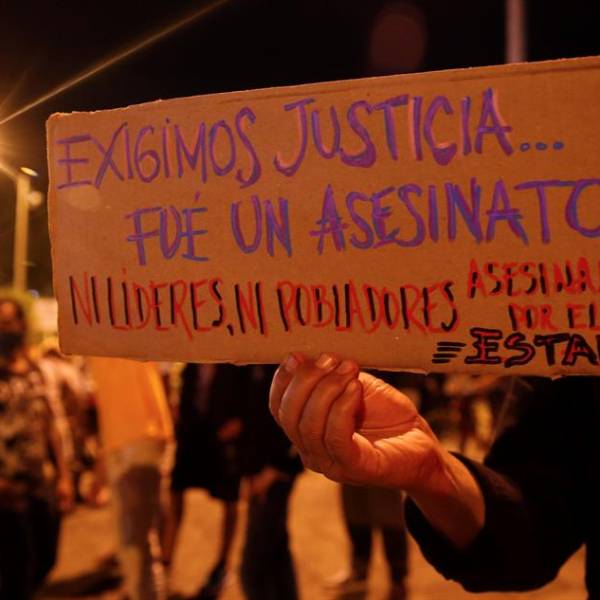 EXIGIMOS JUSTICIA...
FUÉ UN ASESINATO
NI LÍDERES, NI POBLADORES
POR EL